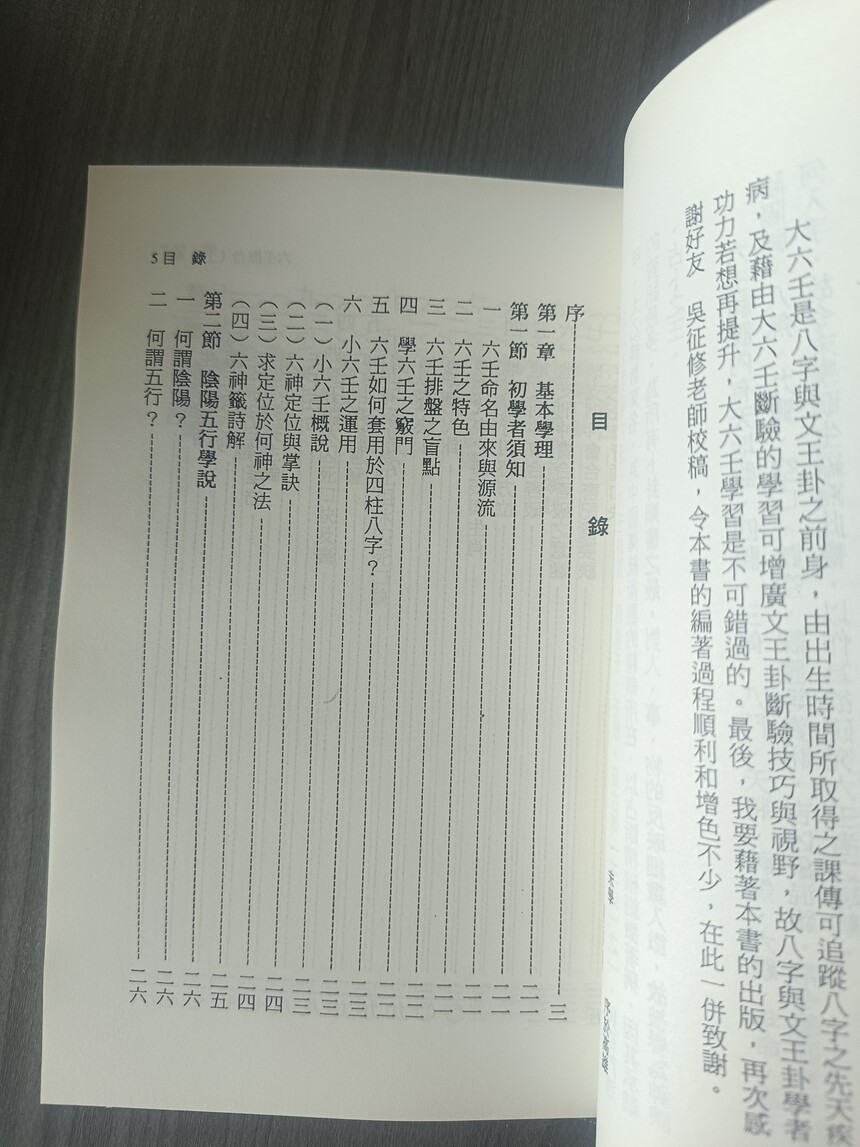 大六壬是八字與文王卦之前身，由出生時間所取得之課傳可追蹤八字之先天疾
病，及藉由大六壬斷驗的學習可增廣文王卦斷驗技巧與視野，故八字與文王卦學者
功力若想再提升，大六壬學習是不可錯過的。最後，我要藉著本書的出版，再次感
謝好友　吳征修老師校稿，令本書的編著過程順利和增色不少，在此一併致謝。
5 目　錄
目　錄
序 三
第一章　基本學理 二一
第一節　初學者須知 二一
一　六壬命名由來與源流 二一
二　六壬之特色 二一
三　六壬排盤之盲點 二二
四　學六壬之竅門 二二
五　六壬如何套用於四柱八字？ 二三
六　小六壬之運用 二三
（一）小六壬概說 二三
（二）六神定位與掌訣 二四
（三）求定位於何神之法 二四
（四）六神籤詩解 二五
第二節　陰陽五行學說 二六
一　何謂陰陽？ 二六
二　何謂五行？ 二六